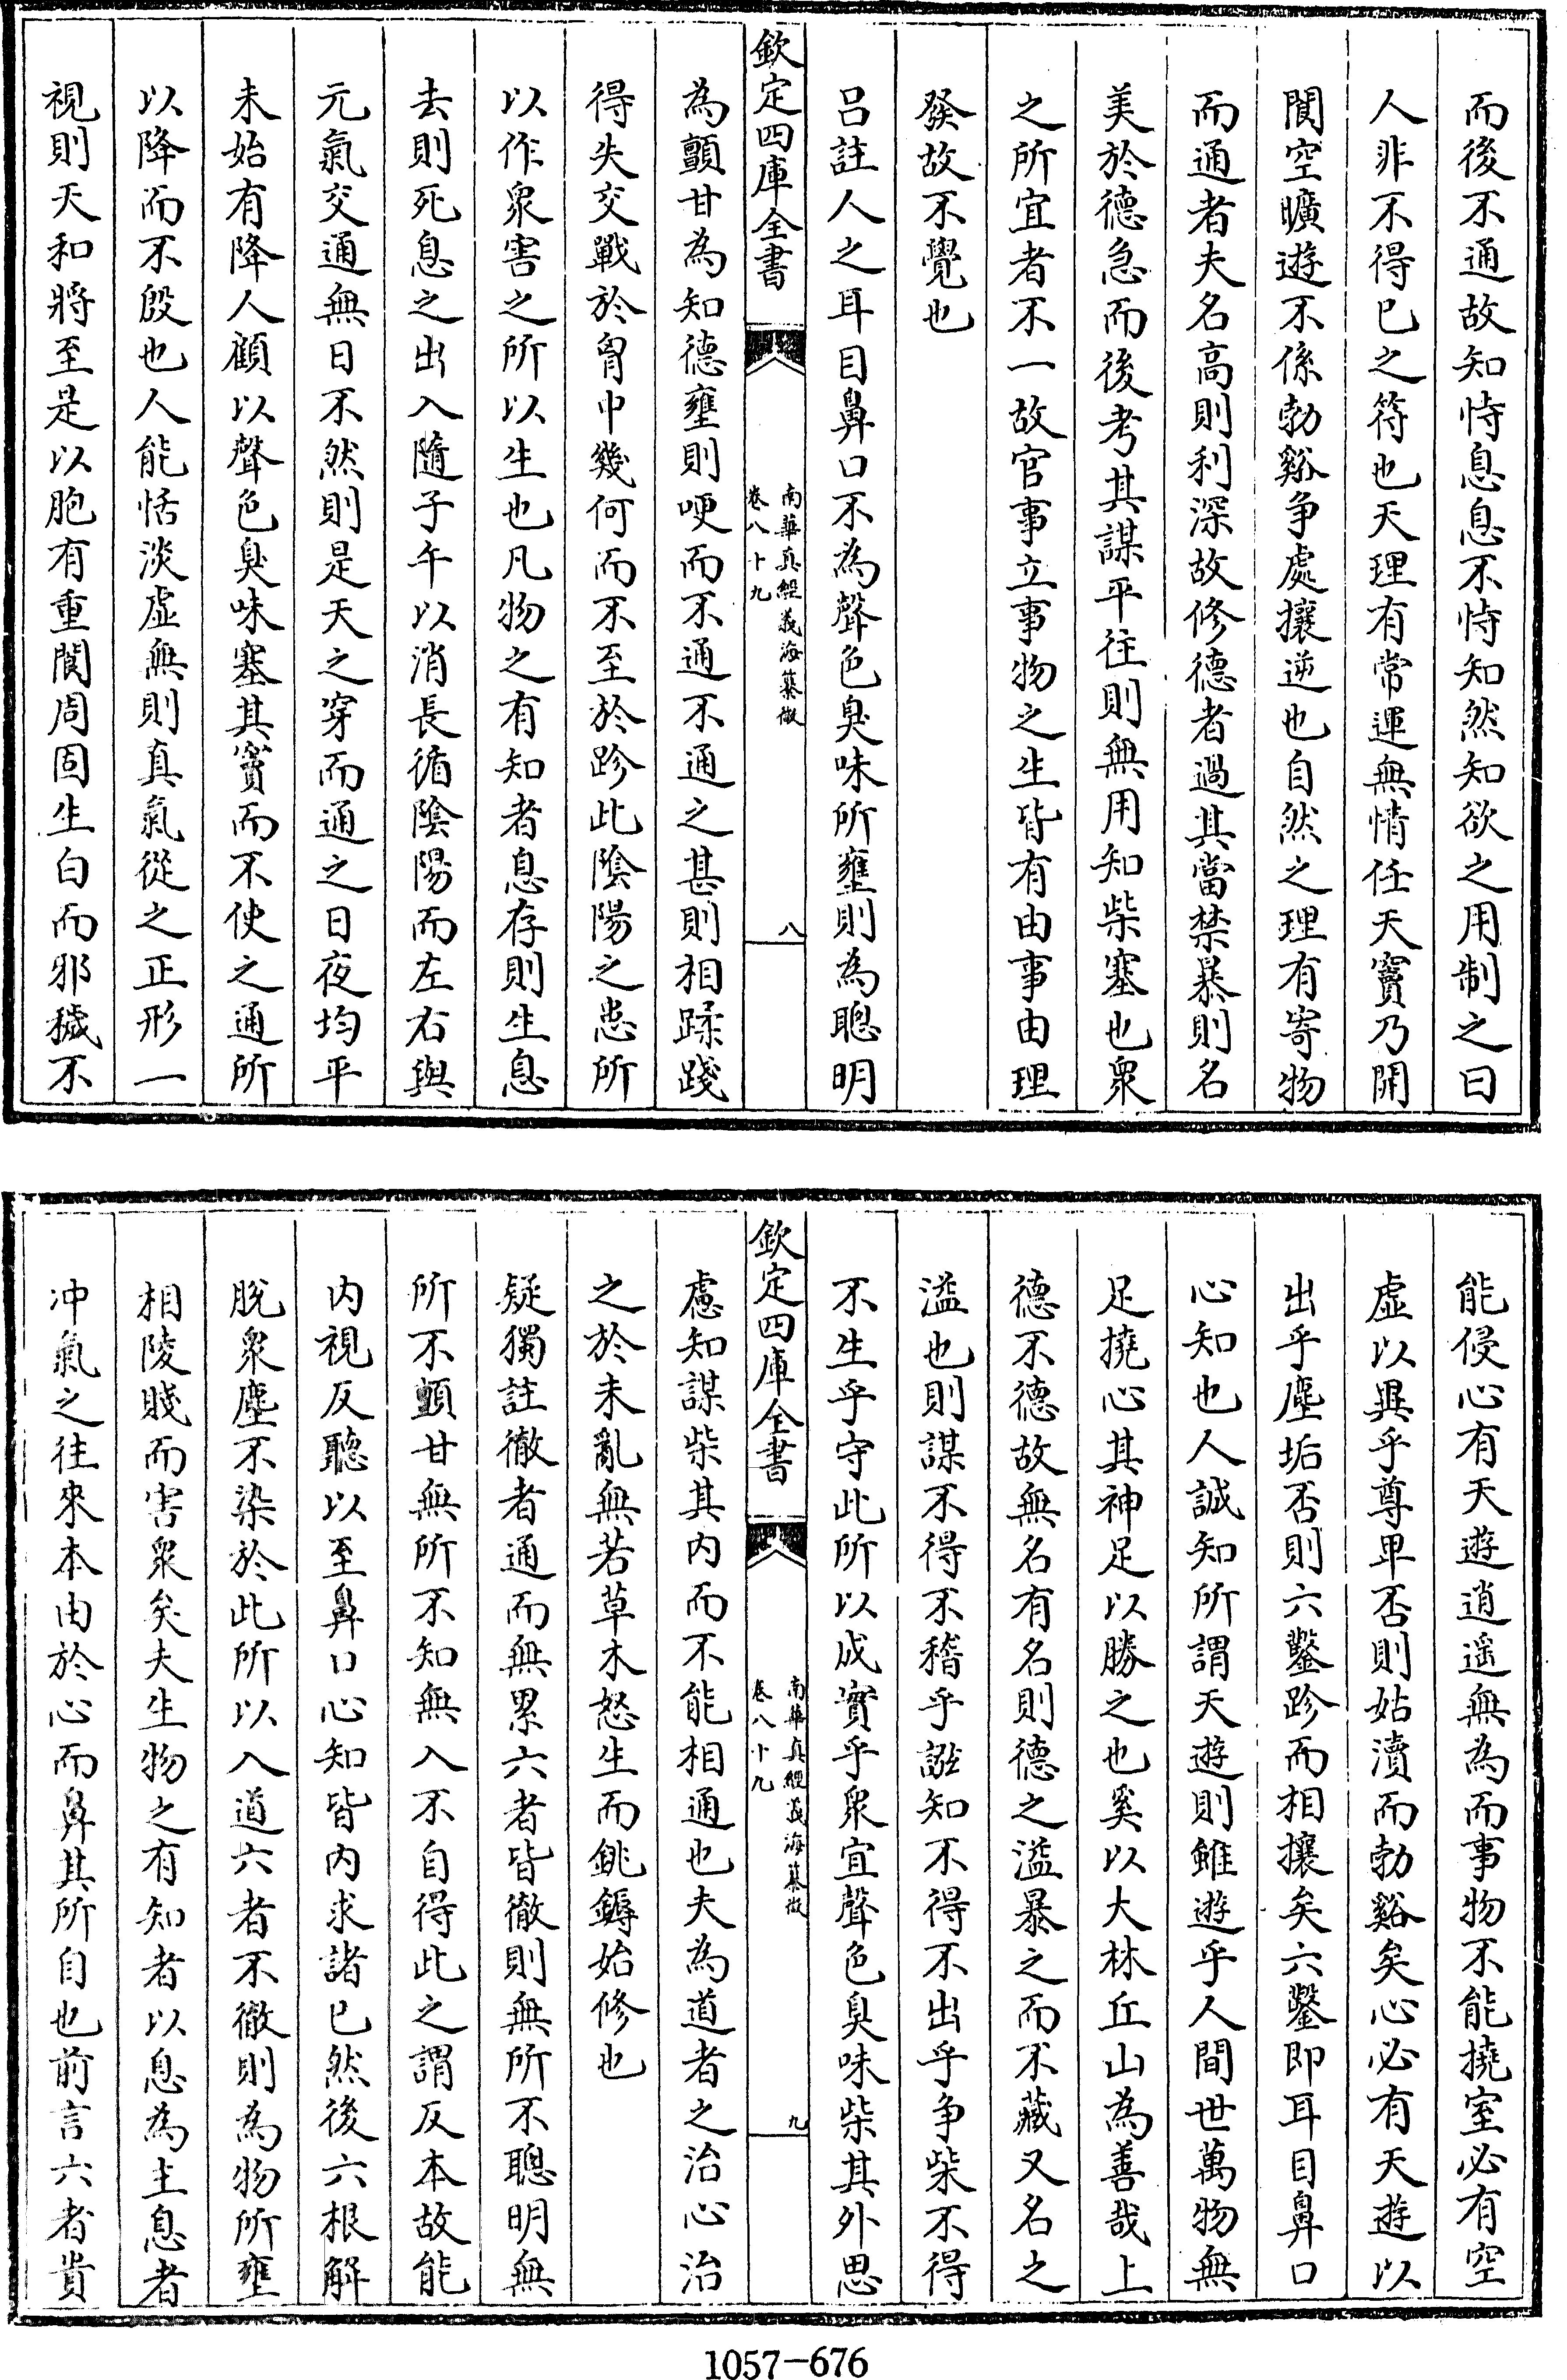 而後不通故知恃息息不恃知然知欲之用制之曰
人非不得已之符也天理有常運無情任天竇乃開
閬空曠遊不係勃谿争處攘逆也自然之理有寄物
而通者夫名高則利深故修德者過其當禁暴則名
美於德急而後考其謀平往則無用知柴塞也衆
之所宜者不一故官事立事物之生皆有由事由理
發故不覺也
吕註人之耳目鼻口不為聲色臭味所壅則為聰明
欽定四庫全書
南華真經義海纂微
卷八十九
八
為顫甘為知德壅則哽而不通不通之甚則相蹂踐
得失交戰於胷中幾何而不至於跈此陰陽之患所
以作衆害之所以生也凡物之有知者息存則生息
去則死息之出入隨子午以消長循陰陽而左右與
元氣交通無日不然則是天之穿而通之日夜均平
未始有降人顧以聲色臭味塞其竇而不使之通所
以降而不殷也人能恬淡虚無則真氣從之正形一
視則天和將至是以胞有重閬周固生白而邪穢不
能侵心有天遊逍遥無為而事物不能撓室必有空
虚以異乎尊卑否則姑瀆而勃谿矣心必有天遊以
出乎塵垢否則六鑿跈而相攘矣六鑿即耳目鼻口
心知也人誠知所謂天遊則雖遊乎人間世萬物無
足撓心其神足以勝之也奚以大林丘山為善哉上
德不德故無名有名則德之溢暴之而不藏又名之
溢也則謀不得不稽乎誸知不得不出乎争柴不得
不生乎守此所以成實乎衆宜聲色臭味柴其外思
欽定四庫全書
南華真經義海纂微
卷八十九
九
慮知謀柴其内而不能相通也夫為道者之治心治
之於未亂無若草木怒生而銚鎒始修也
疑獨註徹者通而無累六者皆徹則無所不聰明無
所不顫甘無所不知無入不自得此之謂反本故能
内視反聽以至鼻口心知皆内求諸已然後六根解
脱衆塵不染於此所以入道六者不徹則為物所壅
相陵賤而害衆矣夫生物之有知者以息為主息者
冲氣之往來本由於心而鼻其所自也前言六者貴
1057-676